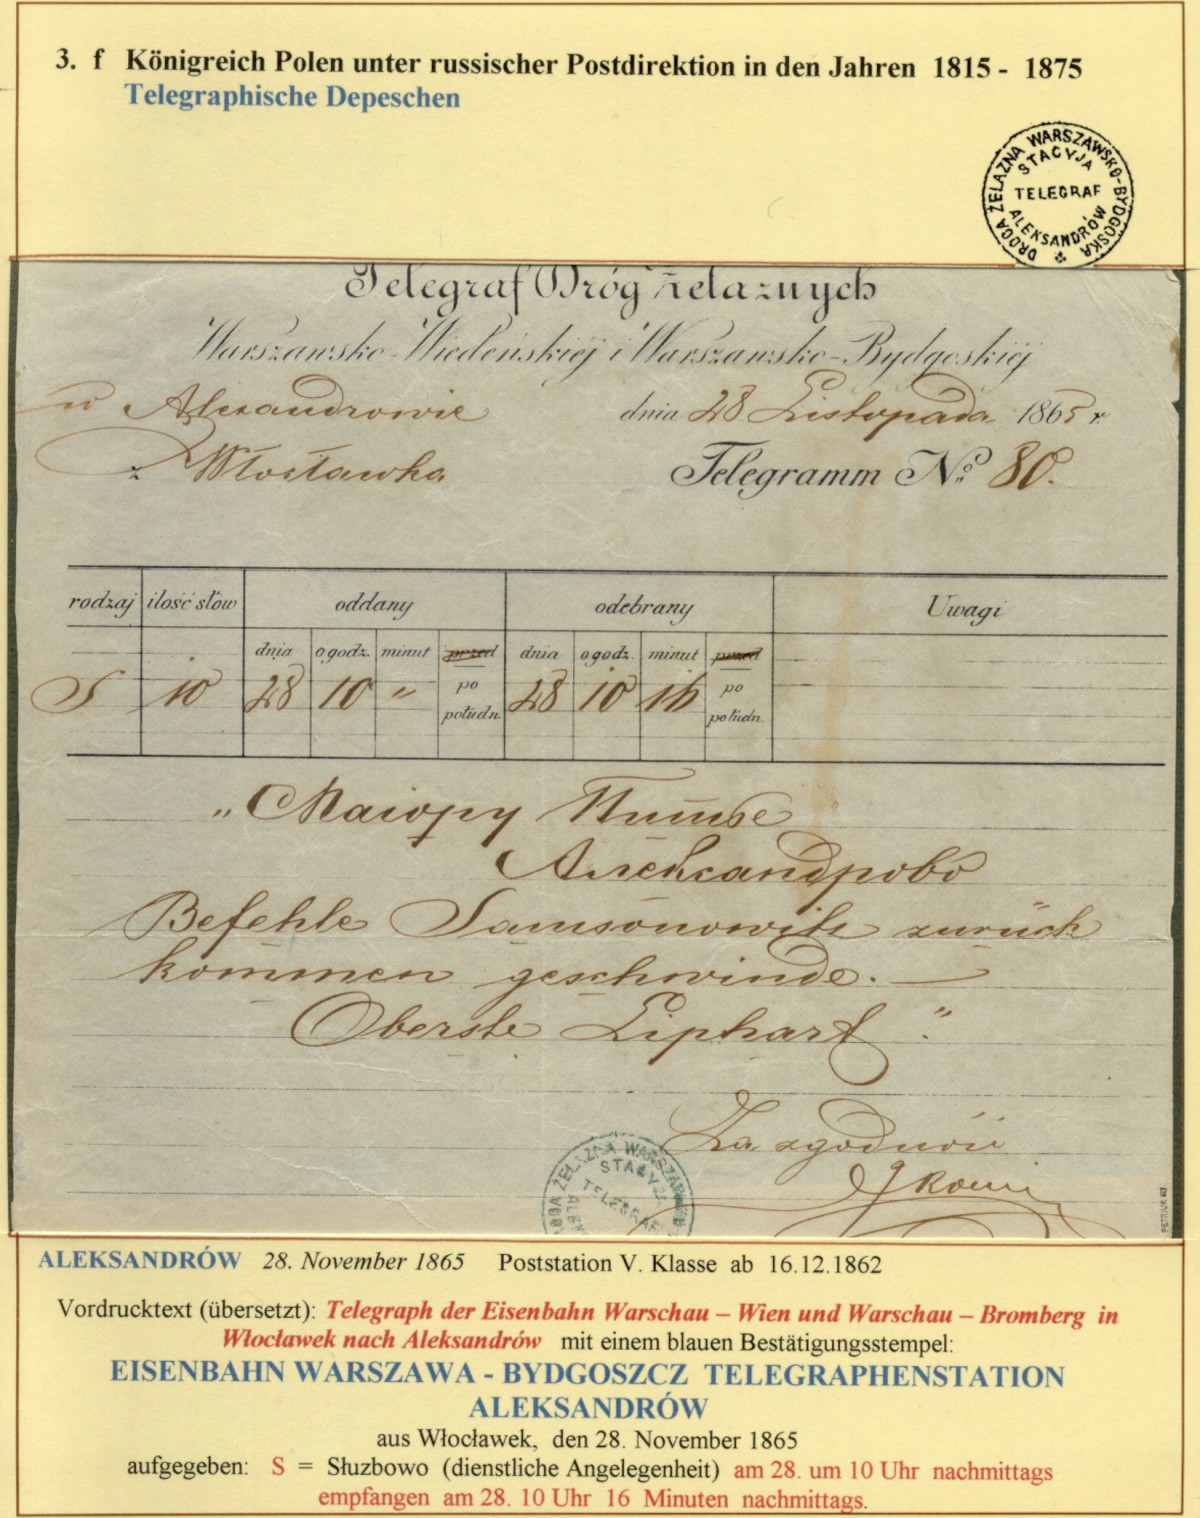 3. f Königreich Polen unter russischer Postdirektion in den Jahren 1815 - 1875
Telegraphische Depeschen
DROGA ŻELAZNA WARSZAWSKO-BYDGOSKA
STACYJA
TELEGRAF
ALEKSANDRÓW
Telegraf Dróg Żelaznych
Warszawsko-Wiedeńskiéj i Warszawsko-Bydgoskiéj
w Alexandrowie dnia 28 Listopada 1865 r.
z Włocławka Telegramm No. 80.
rodzaj ilość słow oddany odebrany Uwagi
dnia o godz. minut przed dnia o godz. minut przed
S 10 28 10 " po 28 10 16 po
połudn. połudn.
„Маіору
Александрово
Befehle Samsonowitz zurück
kommen geschwinde.
Oberste Liphart"
Za zgodność
DROGA ŻELAZNA WARSZAWSKO
STACYJA
TELEGRAF
ALEK
PETRIUK
ALEKSANDRÓW 28. November 1865 Poststation V. Klasse ab 16.12.1862
Vordrucktext (übersetzt): Telegraph der Eisenbahn Warschau – Wien und Warschau – Bromberg in
Włocławek nach Aleksandrów mit einem blauen Bestätigungsstempel:
EISENBAHN WARSZAWA - BYDGOSZCZ TELEGRAPHENSTATION
ALEKSANDRÓW
aus Włocławek, den 28. November 1865
aufgegeben: S = Słuzbowo (dienstliche Angelegenheit) am 28. um 10 Uhr nachmittags
empfangen am 28. 10 Uhr 16 Minuten nachmittags.